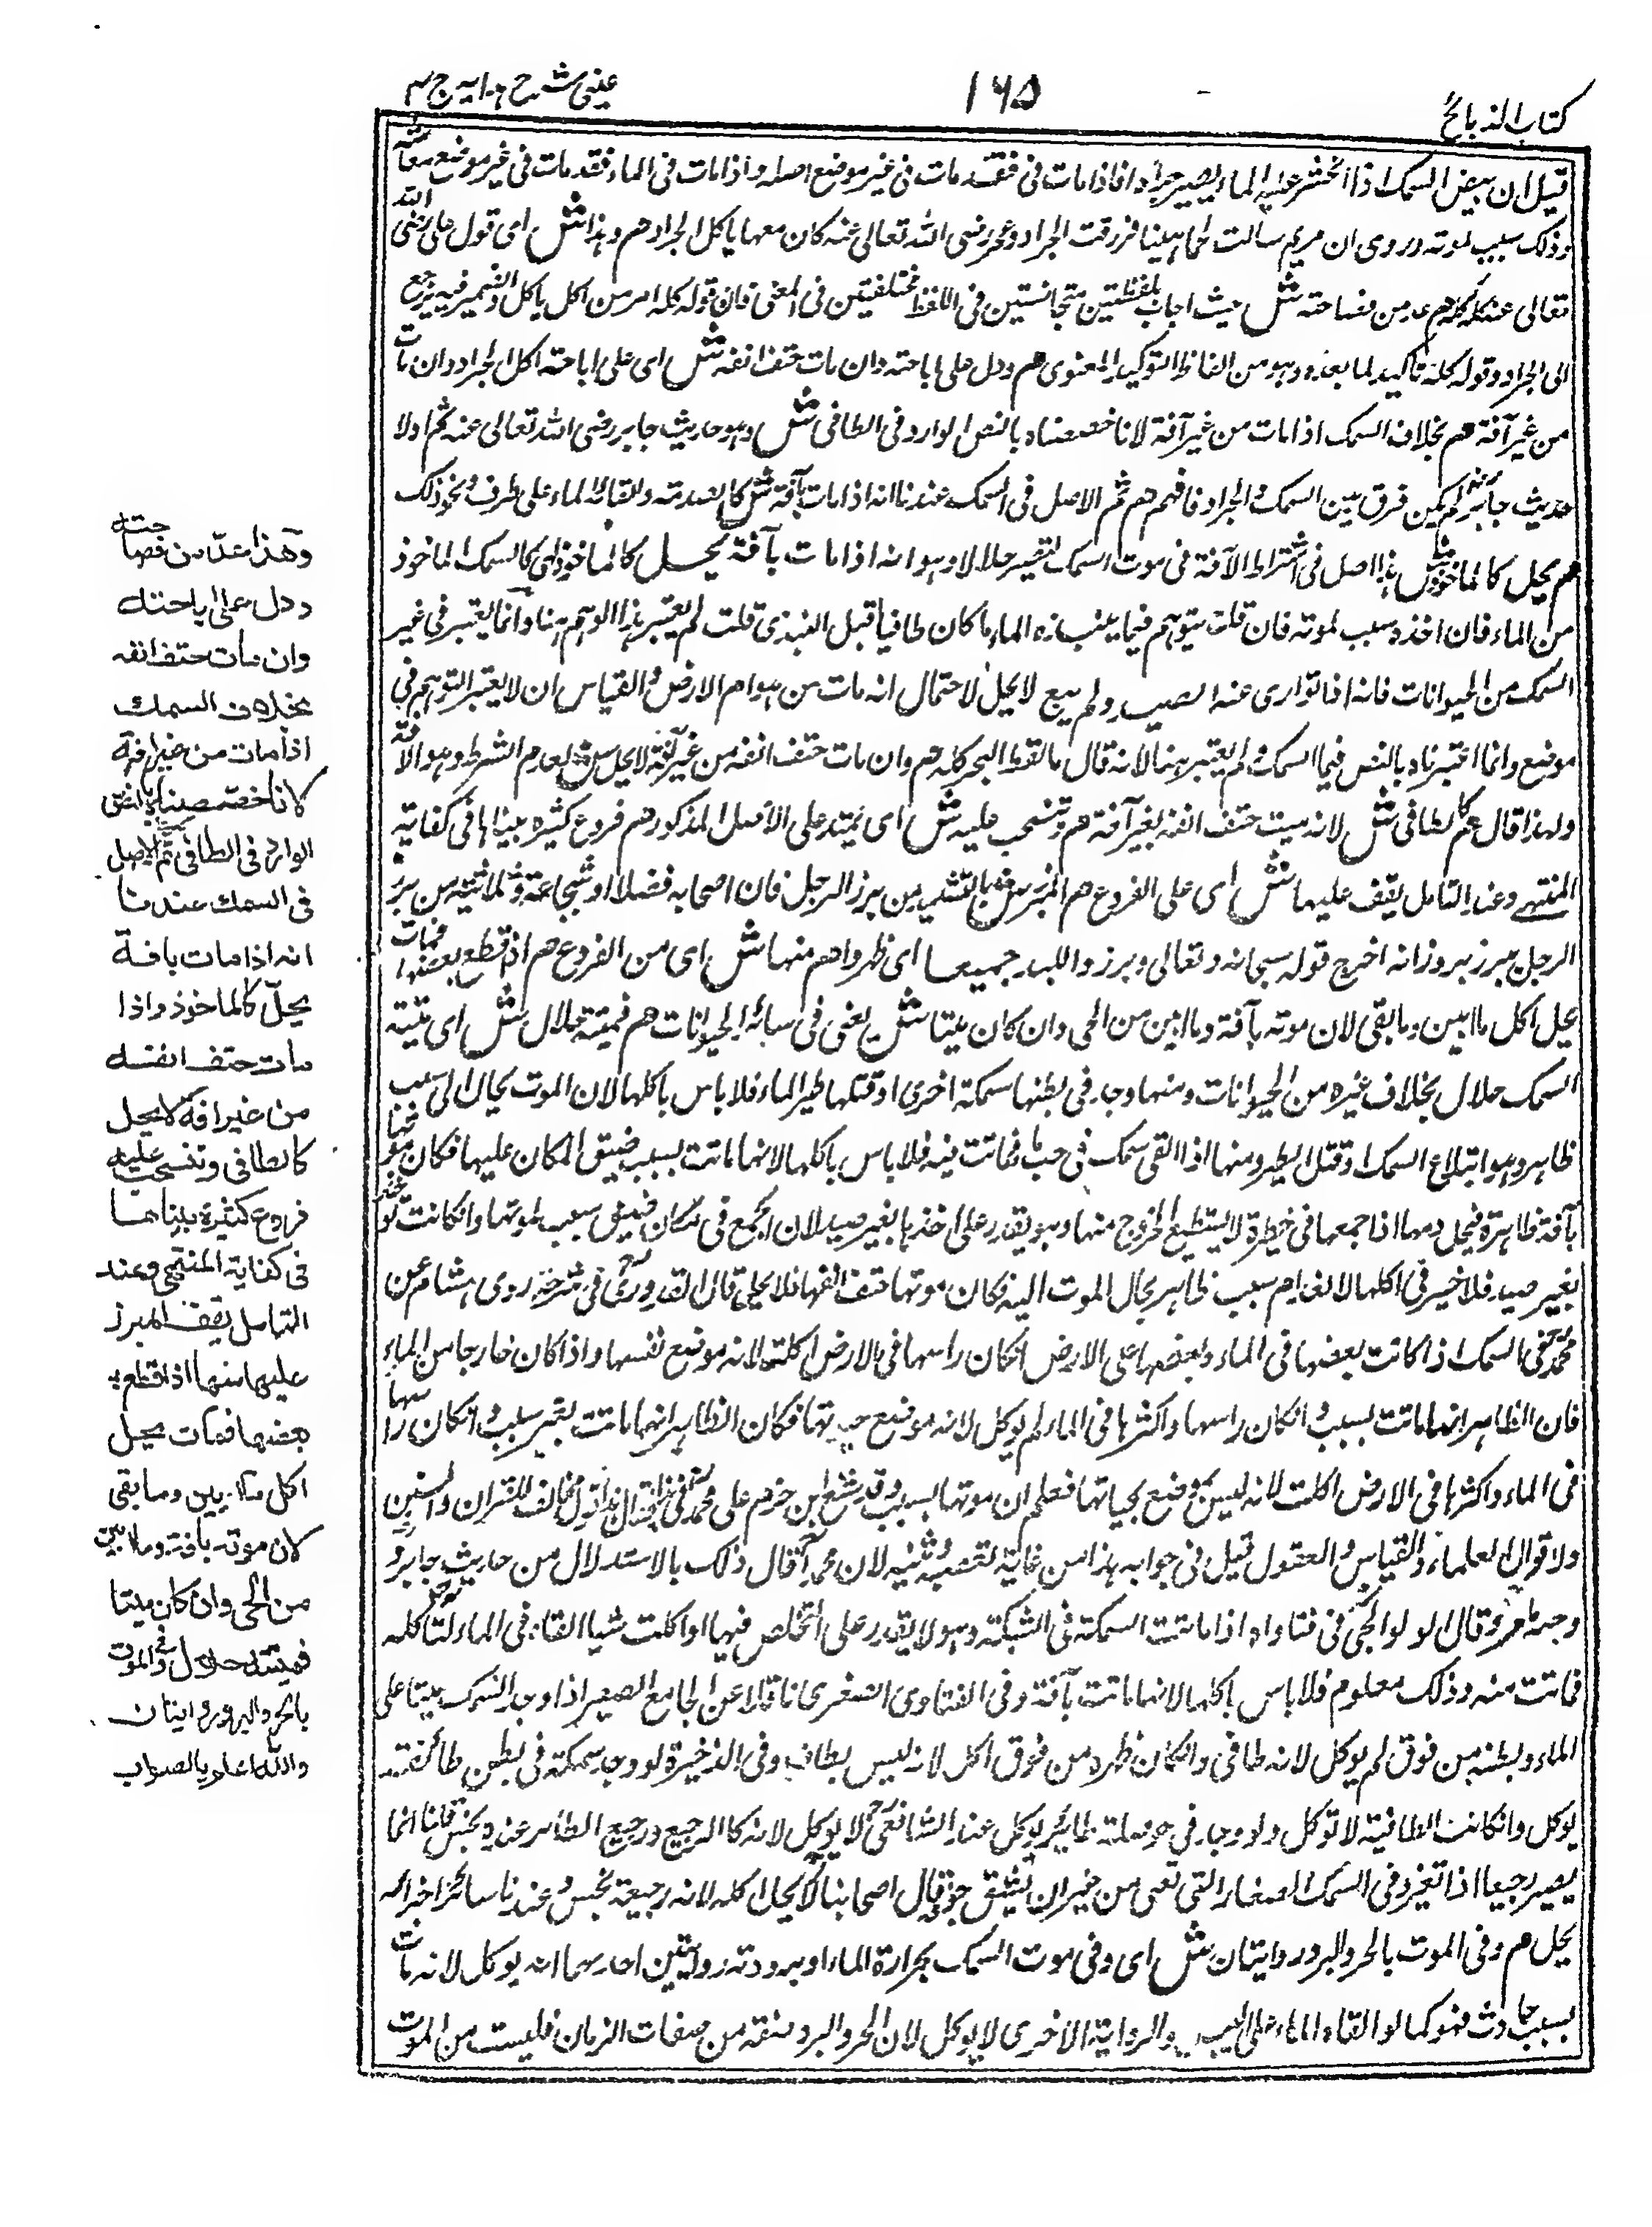 كتاب الذبائح
١٦٥
عينى شرح هدايه ج ٣
قيل ان بيض السمك اذا انحسر عنه الماء يصير جرادا فاذا مات فى فقد مات فى غير موضع اصله واذا مات فى الماء فقد مات فى غير موضع معاشه
وذلك سبب لموته وروى ان مريم سالت لحما هينا فرزقت الجراد وعمر رضى الله تعالى عنه كان مولعا باكل الجراد هم وهذا ش اى قول على رضى الله
تعالى عنه كله كله هم عد من فصاحته ش حيث اجاب بلفظتين متجانستين فى اللفظ مختلفتين فى المعنى فان قوله كله امر من اكل ياكل والضمير فيه يرجع
الى الجراد وقوله كله تاكيد لما بعده وهو من الفاظ التوكيد المعنوى هم ودل على اباحته وان مات حتف انفه ش اى على اباحة اكل الجراد وان مات
من غير آفة هم بخلاف السمك اذا مات من غير آفة لانا خصصناه بالنص الوارد فى الطافى ش وهو حديث جابر رضى الله تعالى عنه ثم لولا
حديث جابر لم يكن فرق بين السمك والجراد فافهم هم ثم الاصل فى السمك عندنا انه اذا مات بآفة ش كالصدمة والقائه الماء على طرف ونحو ذلك
هم يحل كالماخوذ ش هذا اصل فى اشتراط الآفة فى موت السمك لتصير حلالا وهو انه اذا مات بآفة يحل كالماخوذ اى كالسمك الماخوذ
من الماء فان اخذه سبب لموته فان قلت يتوهم فيما ينبذه الماء ما كان طافيا قبل النبذ قلت لم يعتبر هذا الوهم هنا وانما يعتبر فى غير
السمك من الحيوانات فانه اذا توارى عنه الصيد ولم يبع لا يحل لاحتمال انه مات من هوام الارض والقياس ان لا يعتبر التوهم فى
موضع وانما اعتبرناه بالنص فيما السمك ولم يعتبر هنا لانه قال ما لفظ البحر كله هم وان مات حتف انفه من غير آفة لا يحل ش لعدم الشرط وهو الآفة
ولهذا قال هم كالطافى ش لانه ميت حتف انفه بغير آفة هم وتنسحب عليه ش اى يمتد على الاصل المذكور هم فروع كثيره بيناها فى كفاية
المنتهى وعند التامل يقف عليها ش اى على الفروع هم المبرز ش بالتشديد من برز الرجل فان اصحابه فضلا او شجاعة وثلاثيه من برز
الرجل يبرز بروزا انه اخرج قوله سبحانه وتعالى وبرزوا لله جميعا اى ظهروا هم منها ش اى من الفروع هم اذا قطع بعضها فمات
يحل اكل ما ابين وما بقى لان موته بآفة وما ابين من الحى وان كان ميتا ش يعنى فى سائر الحيوانات هم فميتته حلال ش اى ميتة
السمك حلال بخلاف غيره من الحيوانات ومنها وجد فى بطنها سمكة اخرى او قتلها طير الماء فلا باس باكلها لان الموت يحال الى سبب
ظاهر وهو ابتلاع السمك او قتل الطير ومنها اذا القى سمك فى حب ماء فماتت فيه فلا باس باكلها لانها ماتت بسبب ضيق المكان عليها فكان موتها
بآفة ظاهرة فيحل ومنها اذا جمعها فى حظيرة لا يستطيع الخروج منها وهو يقدر على اخذها بغير صيد لان الجمع فى مكان ضيق سبب لموتها وان كانت تؤخذ
بغير صيد فلا خير فى اكلها لانعدام سبب ظاهر يحال الموت اليه فكان موتها حتف انفها فلا يحل قال القدورى فى شرحه روى هشام عن
محمد فى السمك اذا كانت بعضها فى الماء وبعضها على الارض ان كان راسها فى الارض اكلتها لانه موضع نفسها واذا كان خارجا من الماء
فان الظاهر انها ماتت بسبب وان كان راسها واكثرها فى الماء لم يوكل لانه موضع حيوتها فكان الظاهر انها ماتت بغير سبب وان كان راسها
فى الماء واكثرها فى الارض اكلت لانه ليس موضع بحياتها فعلم ان موتها بسبب وقد شنع ابن حزم على محمد فى هذا فقال هذا قول مخالف للقران والسنن
ولاقوال العلماء والقياس والعقول قيل فى جوابه هذا من غاية تعصبه وشنيه لان محمدا قال ذلك بالاستدلال من حديث جابر و
وجهه مامر وقال الولوالجى فى فتاواه اذا ماتت السمكة فى الشبكة وهو لا يقدر على التخلص فيها او اكلت شيا القاه فى الماء لتاكله
فماتت منه وذلك معلوم فلا باس باكلها لانها ماتت بآفة وفى الفتاوى الصغرى ناقلا عن الجامع الصغير اذا وجد السمك ميتا على
الماء وبطنه من فوق لم يوكل لانه طافى وان كان ظهره من فوق اكل لانه ليس بطاف وفى الذخيرة لو وجد سمكة فى بطن طافئة
يوكل وان كانت الطافية لا توكل ولو وجد فى حوصلة طائر يوكل عند الشافعى لا يوكل لانه كالرجيع ورجيع الطائر عنده نجس قلنا انما
يصير رجيعا اذا تغير وفى السمك الصغار التى تقلى من غير ان يشق جوفه قال اصحابنا لا يحل اكله لانه رجيعة نجس وعندنا سائر اخرائه
يحل هم وفى الموت بالحر والبرد روايتان ش اى وفى موت السمك بحرارة الماء او برودته روايتين احدهما انه يوكل لانه مات
بسبب حادث فهو كما لو القاه الماء على اليبس والرواية الاخرى لا يوكل لان الحر والبرد صفة من صفات الزمان فليست من الموت
وهذا عدّ من فصاحته
ودل على اباحته
وان مات حتف انفه
بخلاف السمك
اذا مات من غير افة
لانا خصصناه بالنص
الوارد فى الطافى ثم الاصل
فى السمك عندنا
انه اذا مات بافة
يحلّ كالماخوذ واذا
مات حتف انفه
من غير افة لا يحل
كالطافى وتنسحب عليه
فروع كثيرة بيناها
فى كفاية المنتهى وعند
التامل يقف المبرز
عليها منها اذا قطع
بعضها فمات يحل
اكل ما ابين وما بقى
لان موته بافة وما ابين
من الحى وان كان ميتا
فميتته حلال وفى الموت
بالحر والبرد روايتان
والله اعلم بالصواب